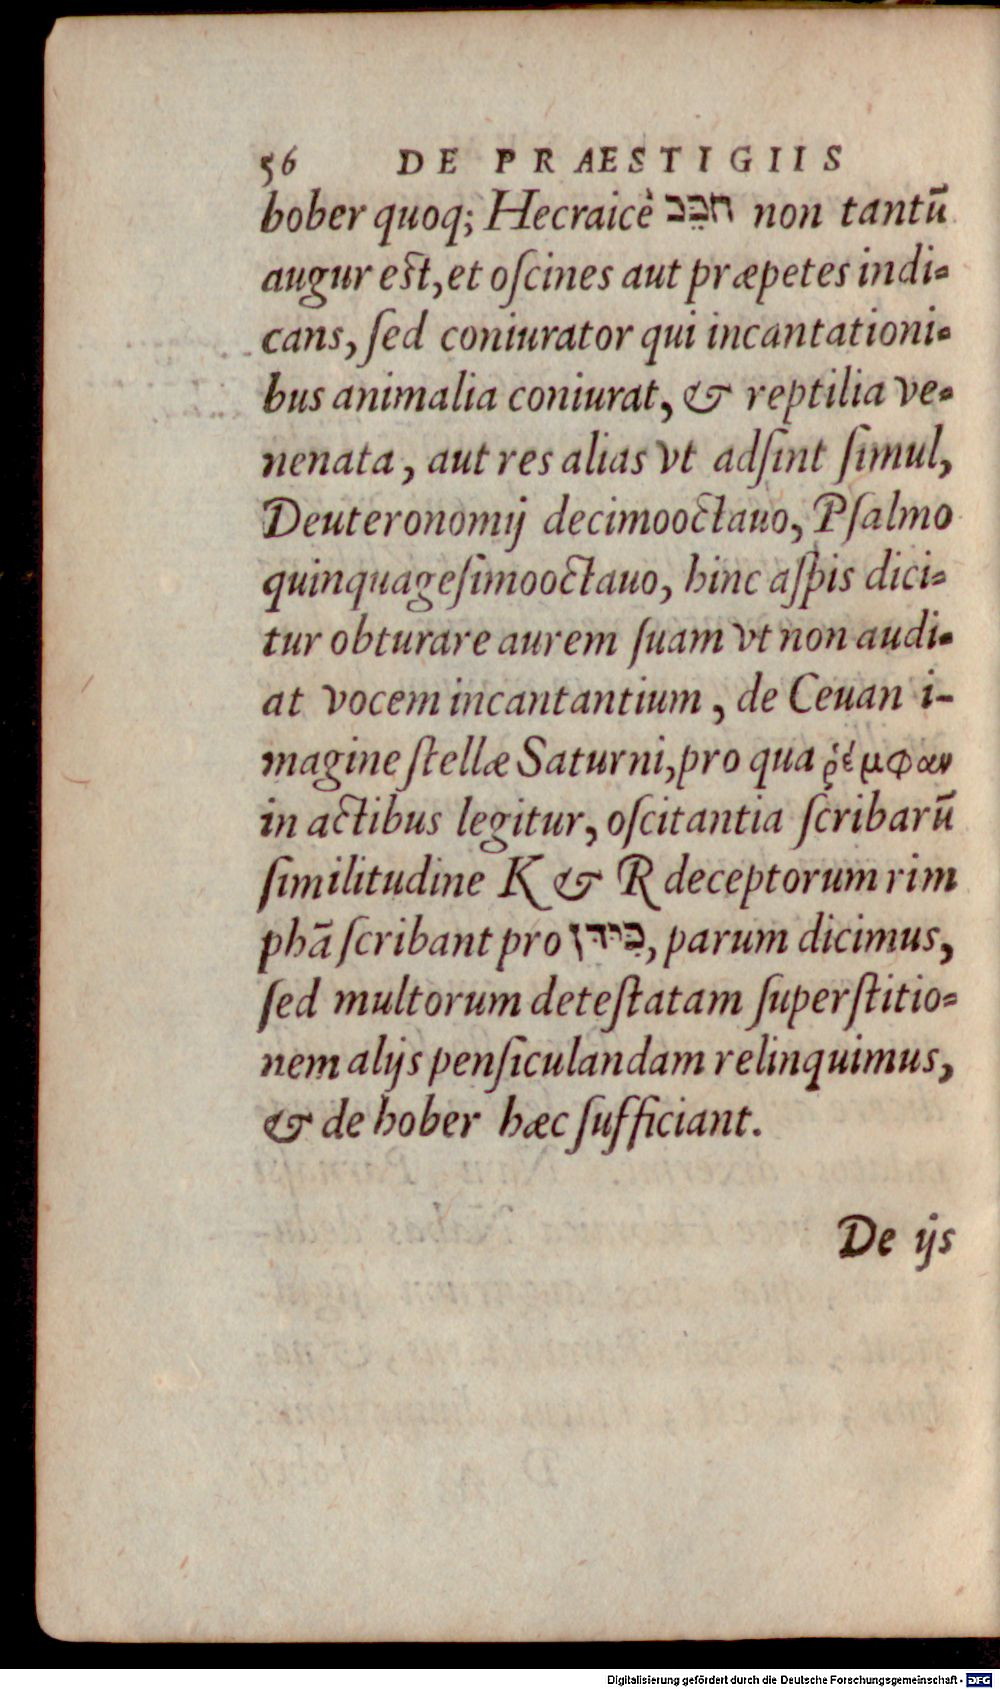 56 DE PRAESTIGIIS
hober quoq; Hecraicè חבֵּב non tantū
augur est, et oſcines aut præpetes indi-
cans, ſed coniurator qui incantationi-
bus animalia coniurat, & reptilia ve-
nenata, aut res alias vt adſint ſimul,
Deuteronomij decimooctauo, Pſalmo
quinquageſimooctauo, hinc aſpis dici-
tur obturare aurem ſuam vt non audi-
at vocem incantantium, de Ceuan i-
magine ſtellæ Saturni, pro qua ῥέμφαν
in actibus legitur, oſcitantia ſcribarū
ſimilitudine K & R deceptorum rim
phā ſcribant pro , parum dicimus,
ſed multorum deteſtatam ſuperſtitio-
nem alijs penſiculandam relinquimus,
& de hober hæc ſufficiant.
De ijs
Digitalisierung gefördert durch die Deutsche Forschungsgemeinschaft - DFG